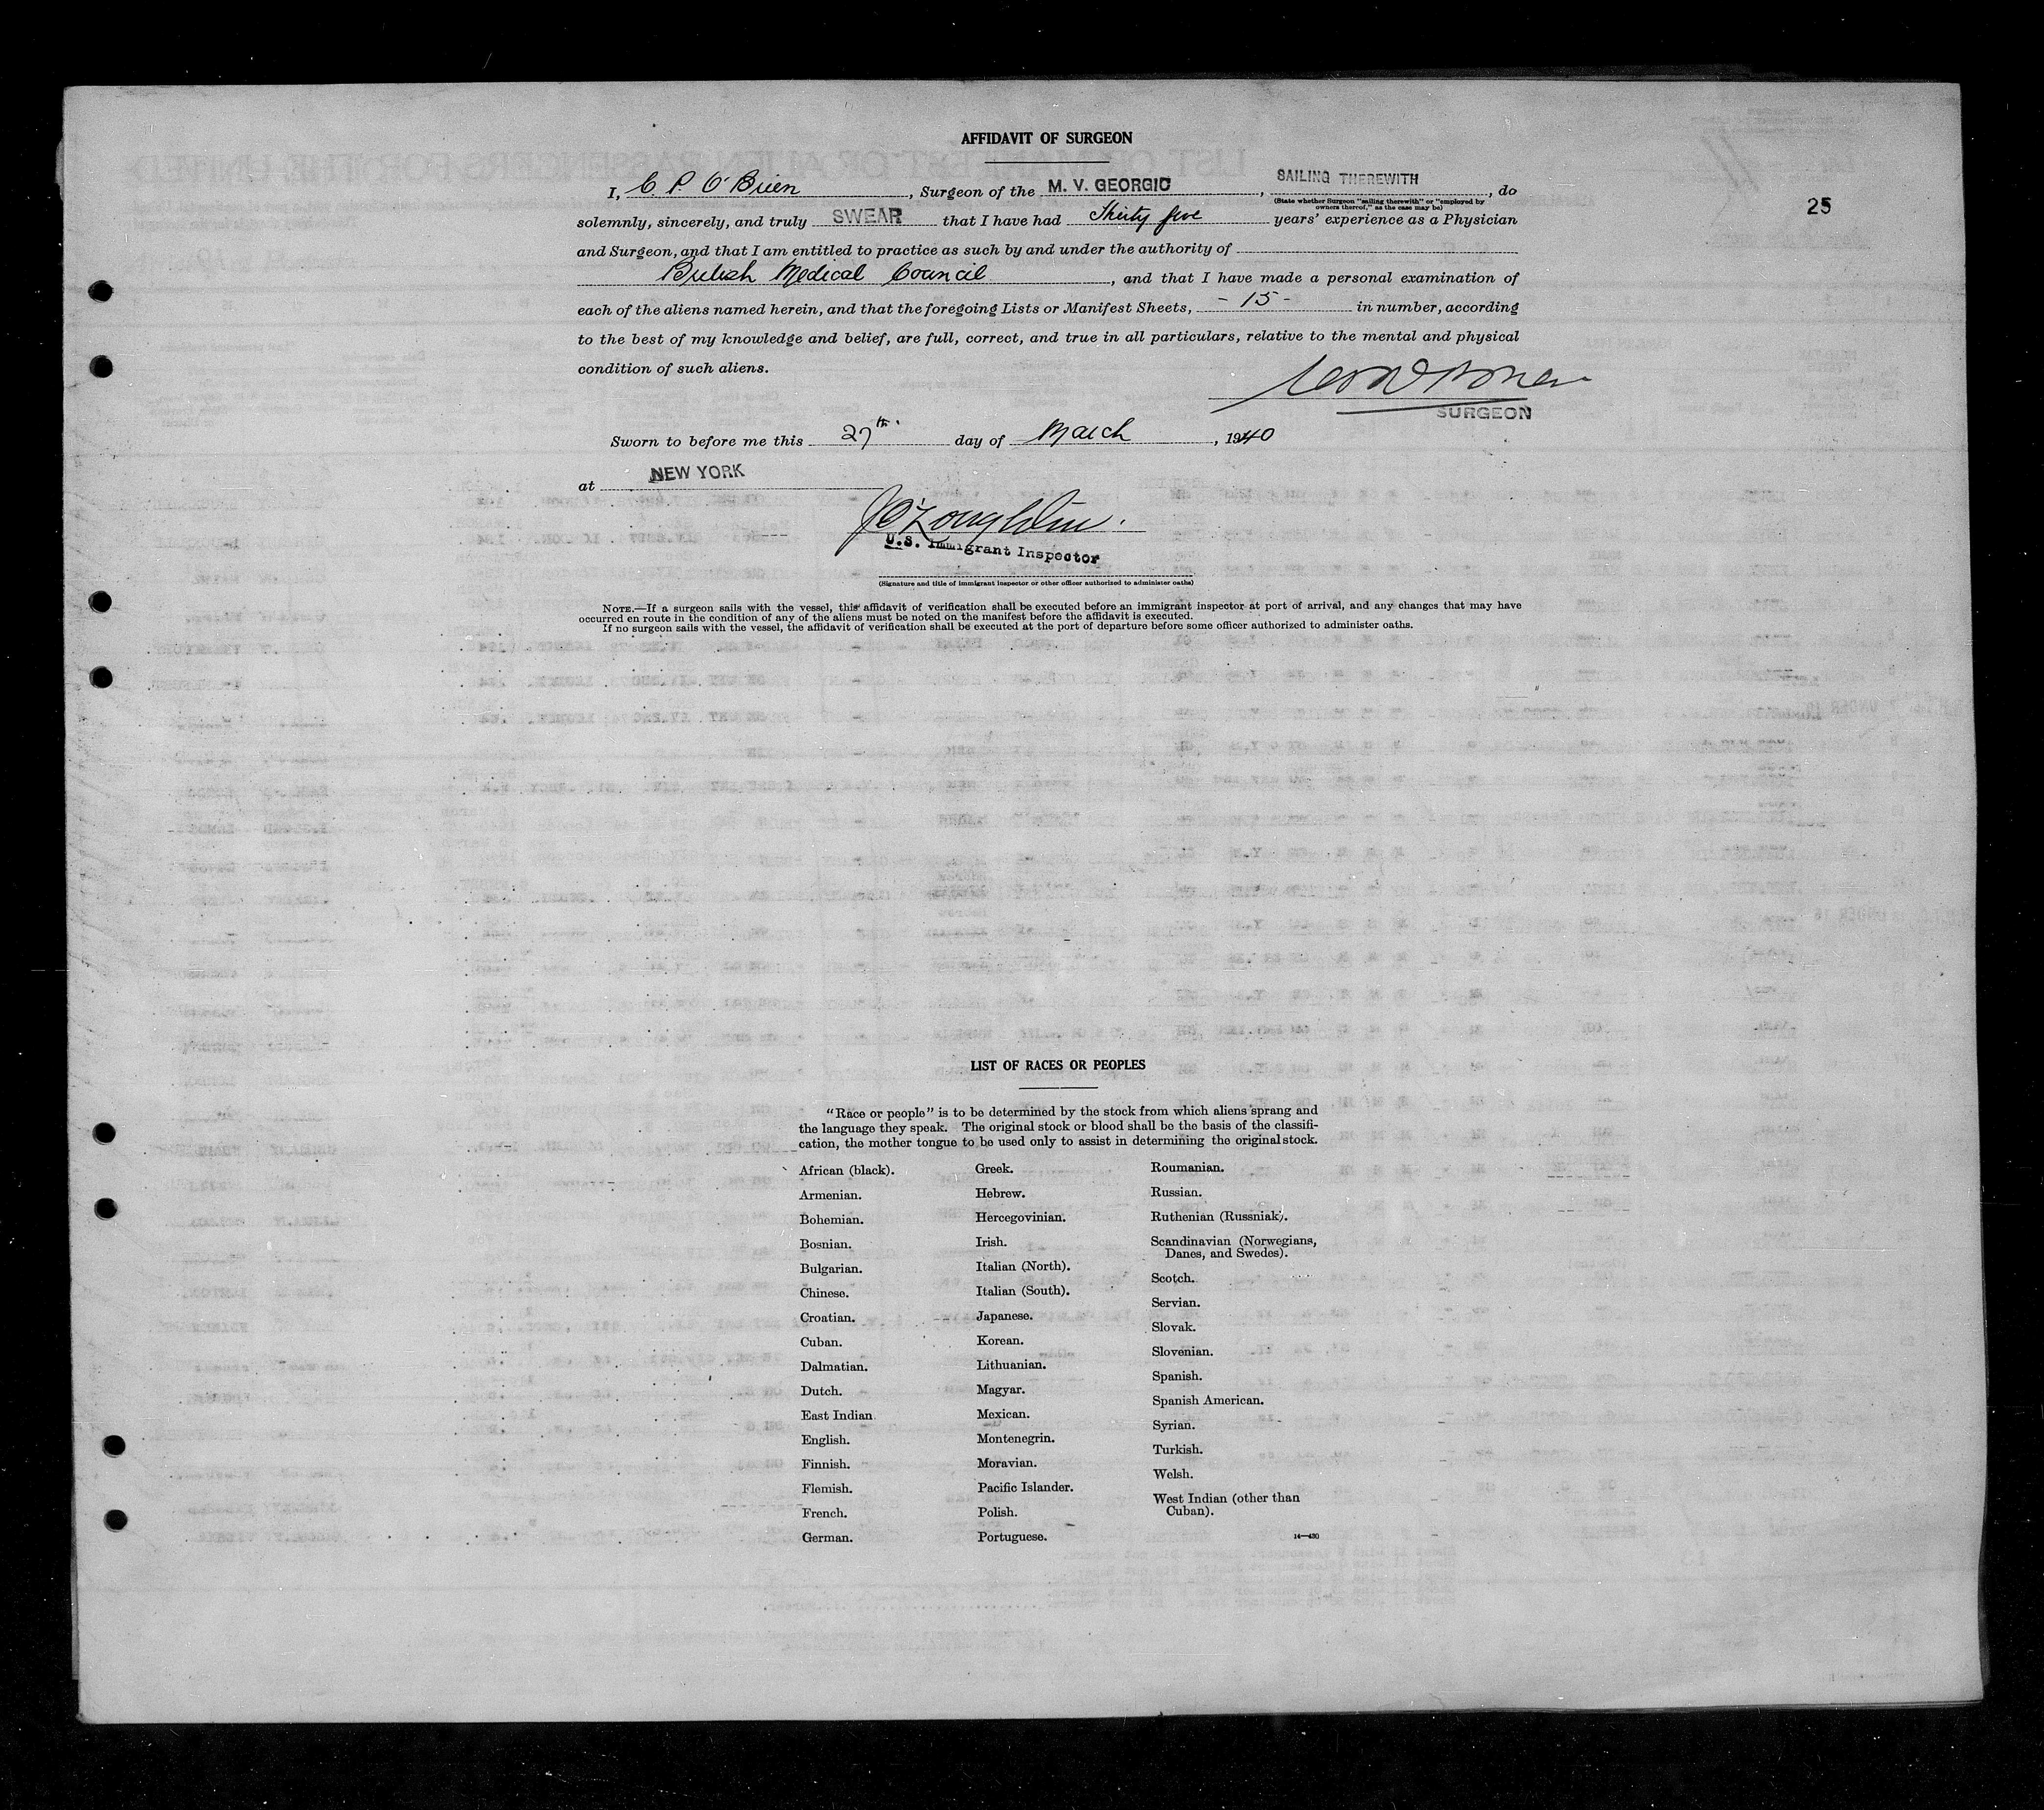 AFFIDAVIT OF SURGEON
25
I, C P O'Brien, Surgeon of the M. V. GEORGIC, SAILING THEREWITH, do
(State whether Surgeon "sailing therewith" or "employed by
owners thereof," as the case may be)
solemnly, sincerely, and truly SWEAR that I have had Thirty five years' experience as a Physician
and Surgeon, and that I am entitled to practice as such by and under the authority of
British Medical Council, and that I have made a personal examination of
each of the aliens named herein, and that the foregoing Lists or Manifest Sheets, - 15 - in number, according
to the best of my knowledge and belief, are full, correct, and true in all particulars, relative to the mental and physical
condition of such aliens.
SURGEON
Sworn to before me this 27th day of March, 1940
at NEW YORK
U.S. Immigrant Inspector
(Signature and title of immigrant inspector or other officer authorized to administer oaths)
NOTE.—If a surgeon sails with the vessel, this affidavit of verification shall be executed before an immigrant inspector at port of arrival, and any changes that may have
occurred en route in the condition of any of the aliens must be noted on the manifest before the affidavit is executed.
If no surgeon sails with the vessel, the affidavit of verification shall be executed at the port of departure before some officer authorized to administer oaths.
LIST OF RACES OR PEOPLES
"Race or people" is to be determined by the stock from which aliens sprang and
the language they speak. The original stock or blood shall be the basis of the classifi-
cation, the mother tongue to be used only to assist in determining the original stock.
African (black).
Armenian.
Bohemian.
Bosnian.
Bulgarian.
Chinese.
Croatian.
Cuban.
Dalmatian.
Dutch.
East Indian
English.
Finnish.
Flemish.
French.
German.
Greek.
Hebrew.
Hercegovinian.
Irish.
Italian (North).
Italian (South).
Japanese.
Korean.
Lithuanian.
Magyar.
Mexican.
Montenegrin.
Moravian.
Pacific Islander.
Polish.
Portuguese.
Roumanian.
Russian.
Ruthenian (Russniak).
Scandinavian (Norwegians,
Danes, and Swedes).
Scotch.
Servian.
Slovak.
Slovenian.
Spanish.
Spanish American.
Syrian.
Turkish.
Welsh.
West Indian (other than
Cuban).
14—430